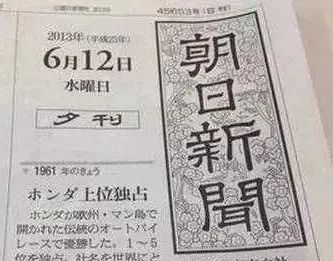 2013年(平成25年)
6月12日
水曜日
夕刊
朝日新聞
1961年のきょう
ホンダ上位独占
ホンダが欧州・マン島で
開かれた伝統のオートバイ
レースで優勝した。1〜5
位を独占。社名を世界にと